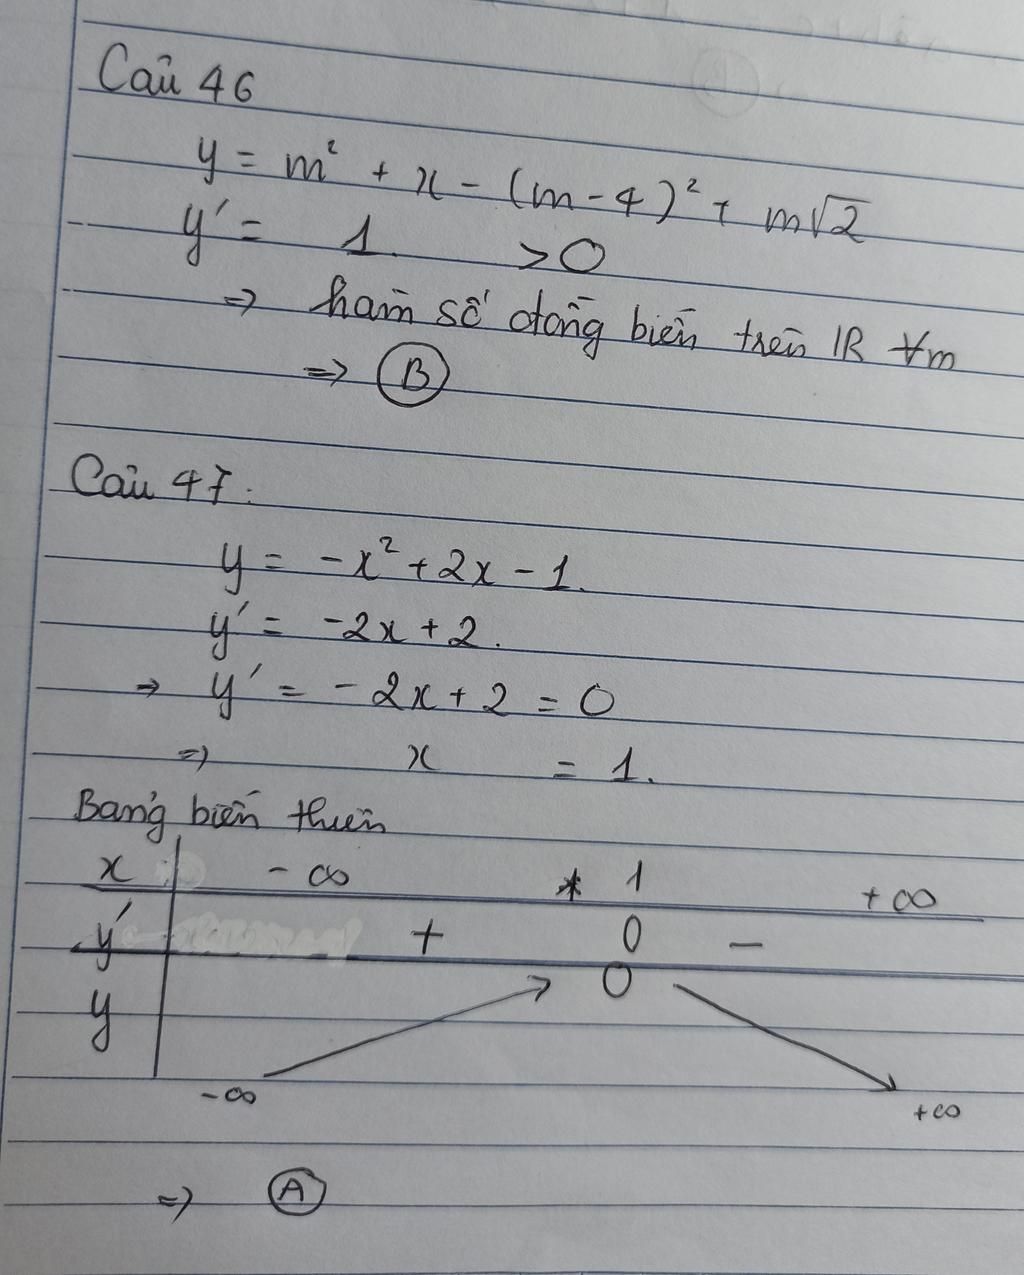 Câu 46
y = m² + x - (m-4)² + m√2
y' = 1 > 0
=> hàm số đồng biến trên ℝ ∀m
=> B
Câu 47:
y = -x² + 2x - 1.
y' = -2x + 2.
=> y' = -2x + 2 = 0
=> x = 1.
Bảng biến thiên
x -∞ 1 +∞
y' + 0 -
y 0
-∞ +∞
=> A